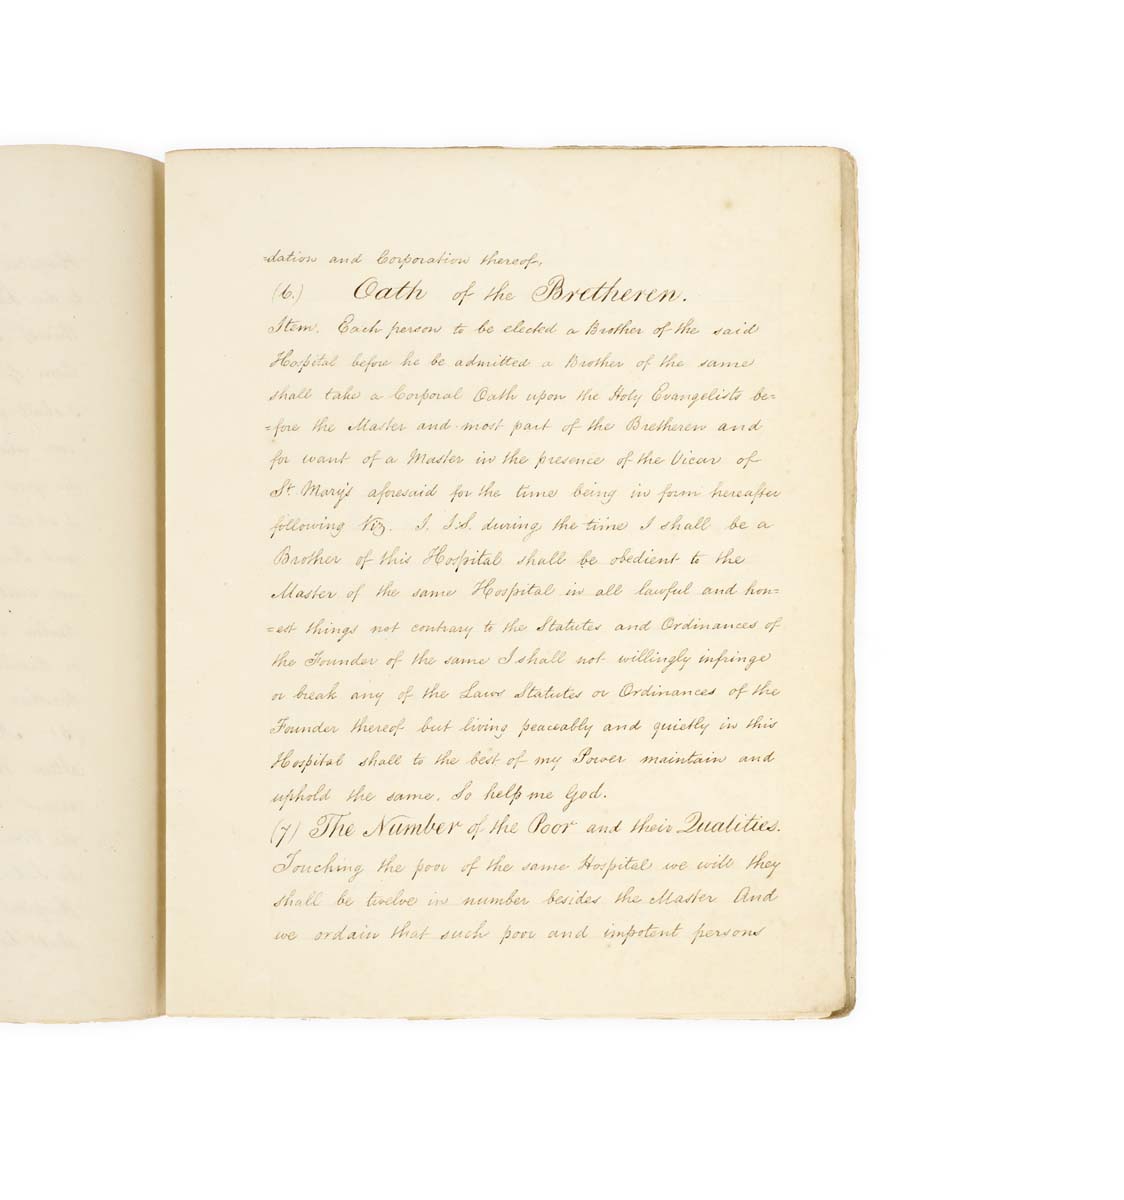 =dation and Corporation thereof,
(6.) Oath of the Bretheren.
Item. Each person to be elected a Brother of the said
Hospital before he be admitted a Brother of the same
shall take a Corporal Oath upon the Holy Evangelists be=
=fore the Master and most part of the Bretheren and
for want of a Master in the presence of the Vicar of
St. Mary's aforesaid for the time being in form hereafter
following Viz. I. I.S. during the time I shall be a
Brother of this Hospital shall be obedient to the
Master of the same Hospital in all lawful and hon=
=est things not contrary to the Statutes and Ordinances of
the Founder of the same I shall not willingly infringe
or break any of the Laws Statutes or Ordinances of the
Founder thereof but living peaceably and quietly in this
Hospital shall to the best of my Power maintain and
uphold the same. So help me God.
(7) The Number of the Poor and their Qualities.
Touching the poor of the same Hospital we will they
shall be twelve in number besides the Master And
we ordain that such poor and impotent persons